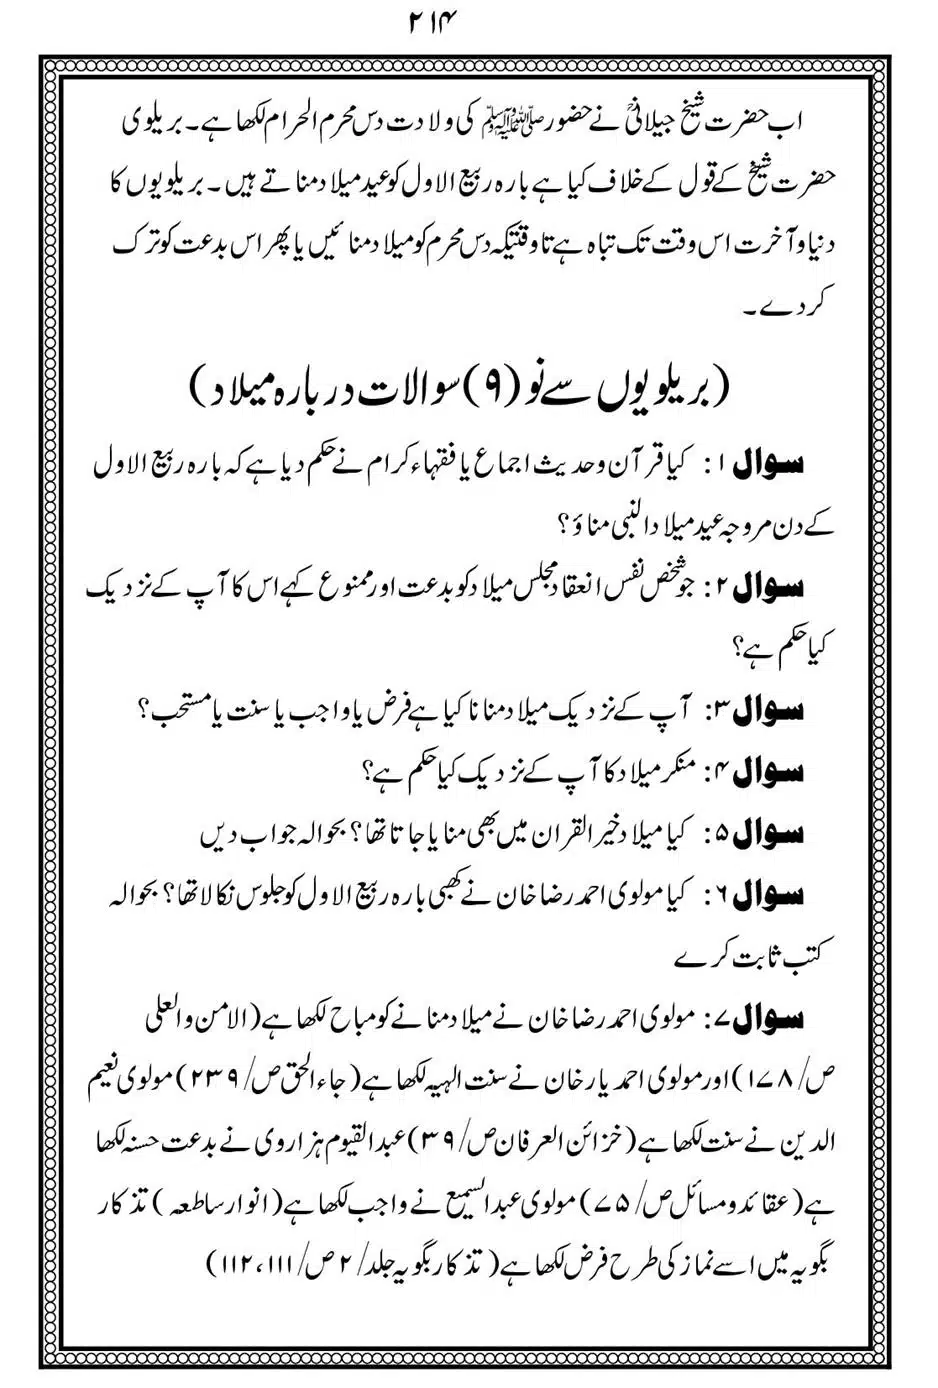 ۲۱۴
اب حضرت شیخ جیلانیؒ نے حضور ﷺ کی ولادت دس محرم الحرام لکھا ہے۔ بریلوی
حضرت شیخؒ کے قول کے خلاف کیا ہے بارہ ربیع الاول کو عید میلاد مناتے ہیں۔ بریلویوں کا
دنیا و آخرت اس وقت تک تباہ ہے تا وقتیکہ دس محرم کو میلاد منائیں یا پھر اس بدعت کو ترک
کردے۔
(بریلویوں سے نو (۹) سوالات دربارہ میلاد)
سوال ۱: کیا قرآن وحدیث اجماع یا فقہاء کرام نے حکم دیا ہے کہ بارہ ربیع الاول
کے دن مروجہ عید میلاد النبی مناؤ؟
سوال ۲: جو شخص نفس انعقاد مجلس میلاد کو بدعت اور ممنوع کہے اس کا آپ کے نزدیک
کیا حکم ہے؟
سوال ۳: آپ کے نزدیک میلاد منانا کیا ہے فرض یا واجب یا سنت یا مستحب؟
سوال ۴: منکر میلاد کا آپ کے نزدیک کیا حکم ہے؟
سوال ۵: کیا میلاد خیر القران میں بھی منایا جاتا تھا؟ بحوالہ جواب دیں
سوال ۶: کیا مولوی احمد رضا خان نے کبھی بارہ ربیع الاول کو جلوس نکالا تھا؟ بحوالہ
کتب ثابت کرے
سوال ۷: مولوی احمد رضا خان نے میلاد منانے کو مباح لکھا ہے (الامن والعلی
ص/۱۷۸) اور مولوی احمد یار خان نے سنت الہیہ لکھا ہے (جاء الحق ص/۲۳۹) مولوی نعیم
الدین نے سنت لکھا ہے (خزائن العرفان ص/۳۹) عبد القیوم ہزاروی نے بدعت حسنہ لکھا
ہے (عقائد ومسائل ص/۷۵) مولوی عبد السمیع نے واجب لکھا ہے (انوار ساطعہ) تذکار
بگویہ میں اسے نماز کی طرح فرض لکھا ہے (تذکار بگویہ جلد/۲ ص/۱۱۲،۱۱۱)